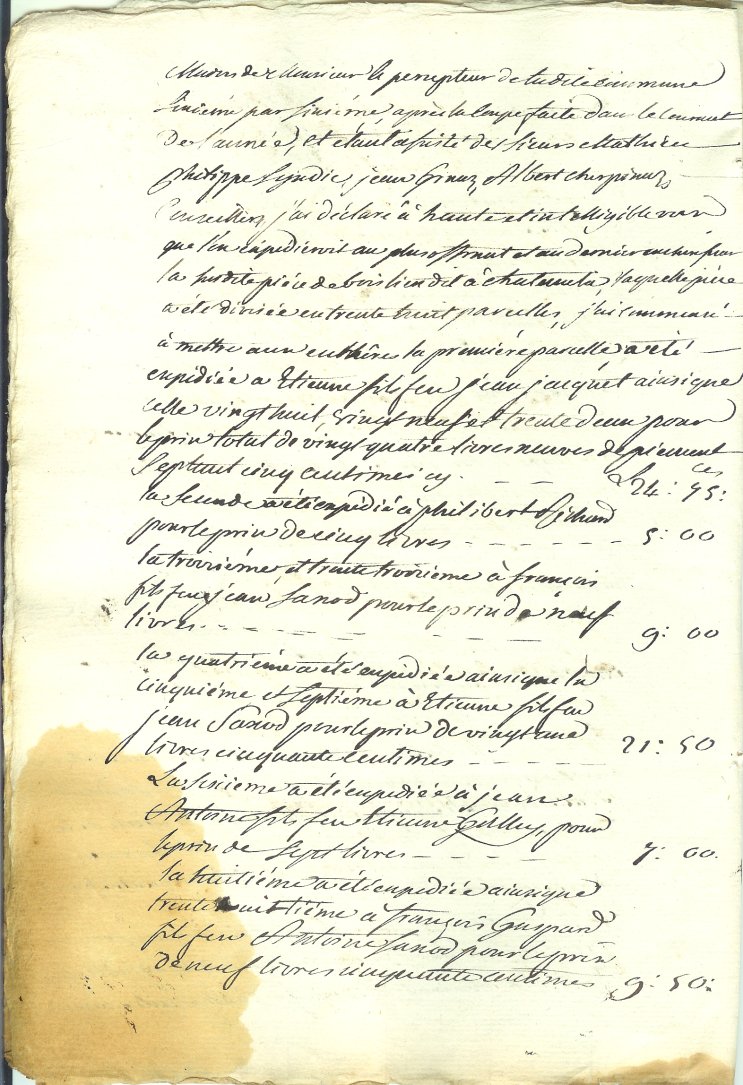 mains de Monsieur le percepteur de ladite commune
sixième par sixième, après la coupe faite dans le courant
De l'année, et étant assisté des sieurs Mathieu
Philippe Syndic, jean Genaz, Albert cherpinaz,
Conseillers, j'ai déclaré à haute et intelligible voix
que l'on expedieroit au plus offrant et au dernier enchérisseur
la susdite piéce de bois lieu dit à chatamela laquelle piéce
a été divisée en trente huit parcelles, j'ai commencé
à mettre aux enchères la premiére parcelle a été
expediée a Etienne fils feu jean jacquet ainsi que
celle vingt huit, vingt neuf et trente deux pour
le prix total de vingt quatre livres neuves de piémont
Septant cinq centimes cy - - - L 24 : 75 : ces
la Seconde a été expédiée à philibert
pour le prix de cinq livres - - - - - 5 : 00
la troisiéme et trente troisieme à françois
fils feu jean Sanod pour le prix de neuf
livres - - - - - - 9 : 00
la quatriéme a été expediée ainsi que la
cinquiéme et Septiéme à Etienne fils feu
jean Sanod pour le prix de vingt une
livres cinquante centimes - - - - 21 : 50
La sixieme a été expediée à jean
Antoine fils feu Etienne Gelley, pour
le prix de Sept livres - - - - - 7 : 00.
la huitiéme a été expediée ainsi que
trente huitiéme à françois Gaspard
fils feu Antoine Sanod pour le prix
de neuf livres cinquante centimes 9 : 50 :